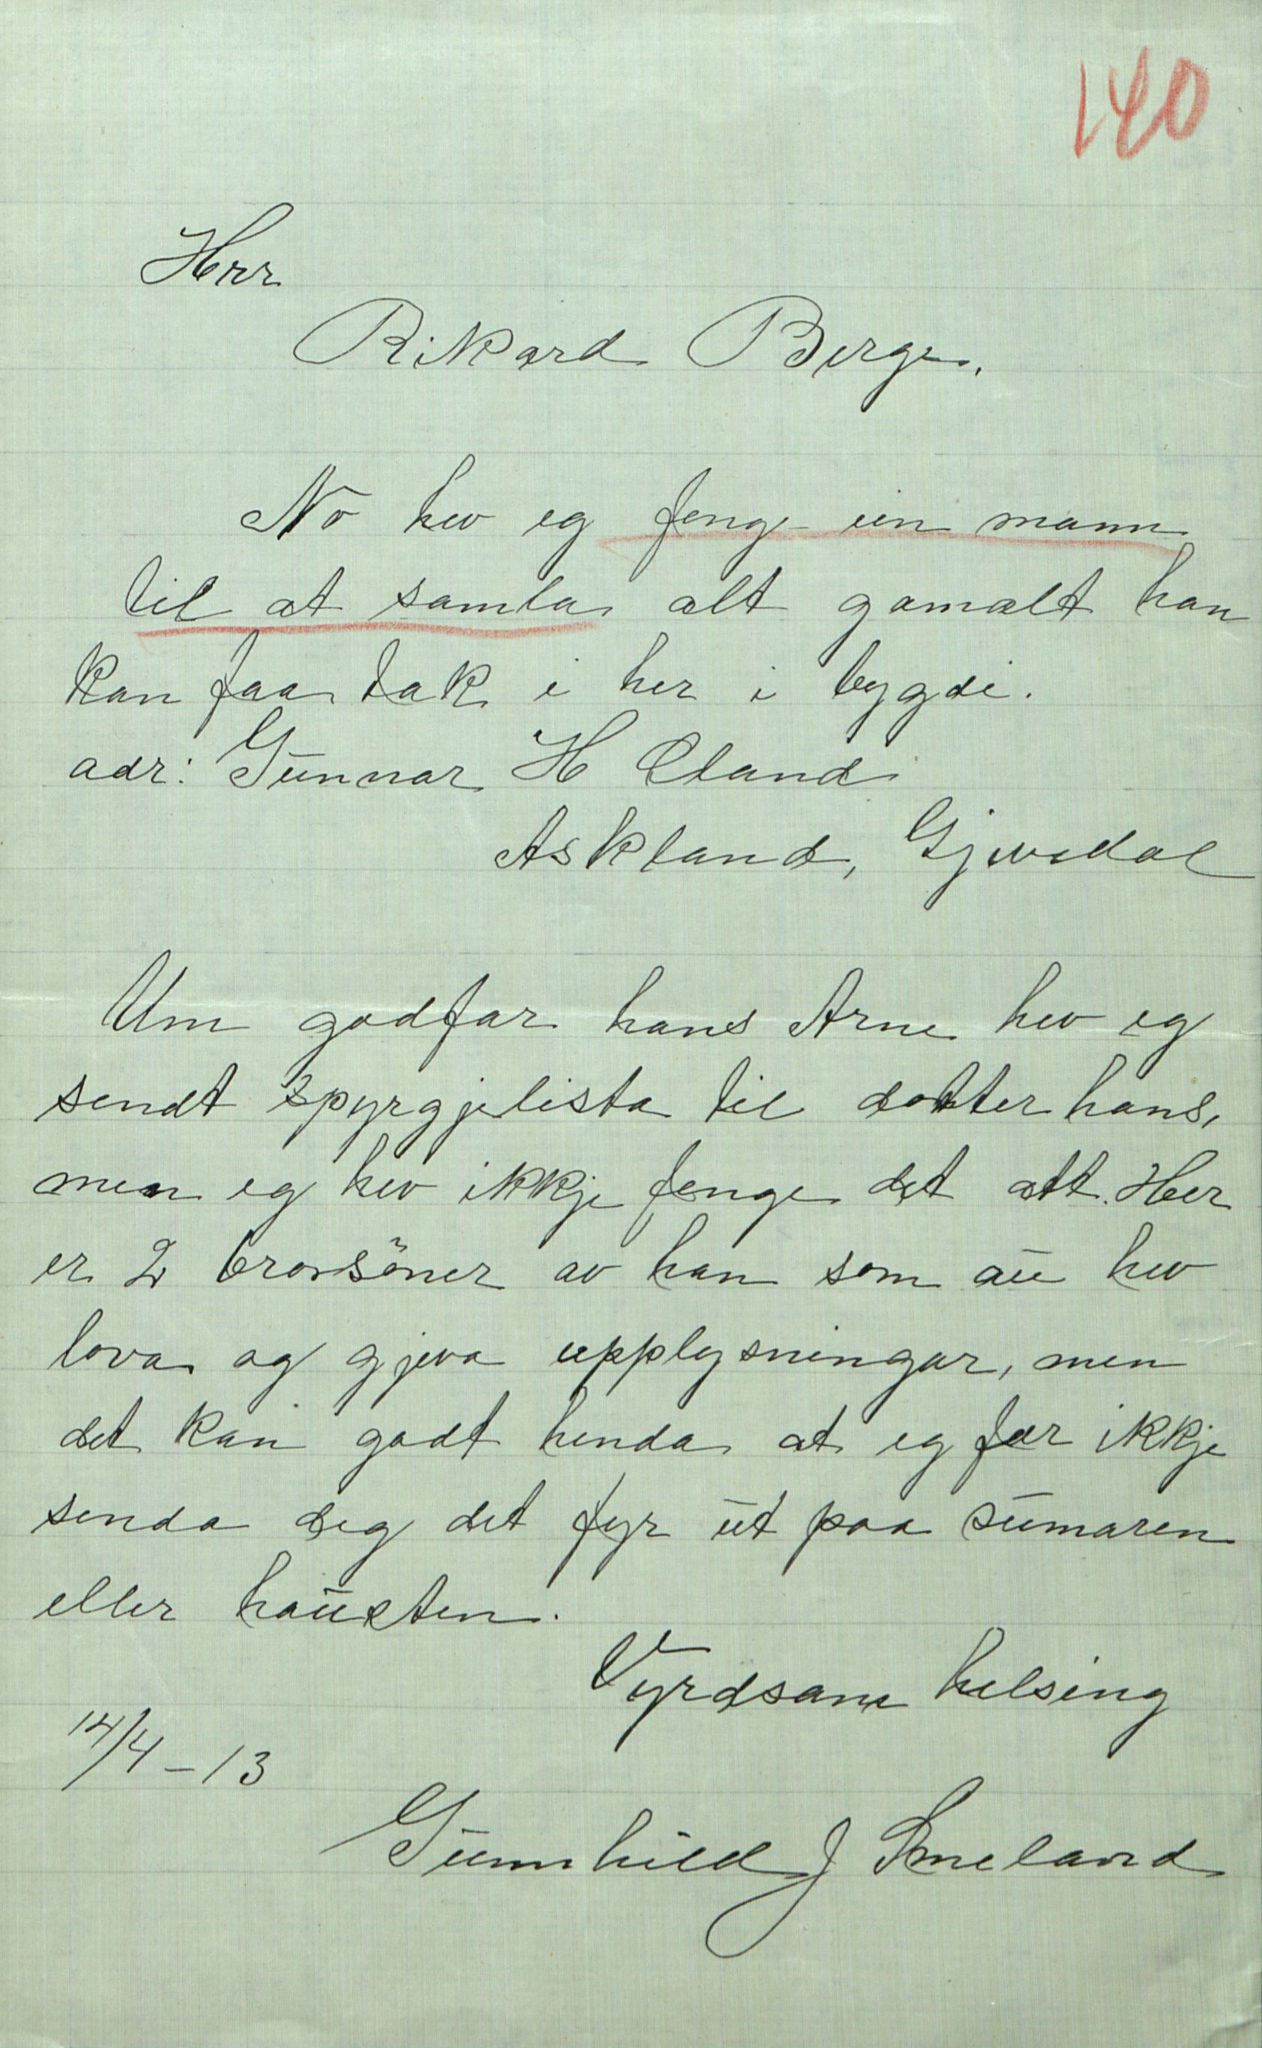 140
Herr
Rikard Berge.
No hev eg fenge ein mann
til at samla alt gamalt han
kan faa tak i her i bygdi.
adr: Gunnar H Eland
Askland, Gjevedal
Um godfar hans Arne hev eg
sendt spyrgjelista til dotter hans,
men eg hev ikkje fenge det att. Her
er 2 brorsöner av han som au hev
lova og gjeva upplysningar, men
det kan godt henda at eg fær ikkje
senda deg det fyr ut paa sumaren
eller hausten.
Vyrdsam helsing
14/4-13
Gunnhild J Smeland